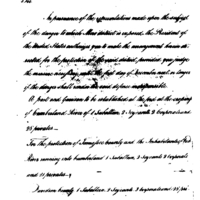 In pursuance of the representations made upon the subject
of the danger to which Mero district is exposed, the President of
the United States authorizes you to make the arrangement herein
stated, for the protection of the said district, provided you judge
the measure necessary, until the first day of December next, or longer
if the danger shall render the same indispensable.
A post and garrison to be established at the ford at the crossing
of Cumberland River of 1 Subaltern, 2 Sergeants 2 Corporals and
privates
For the protection of Tennessee County and the
River running into Cumberland 1 Subaltern, 2 Sergeants 2 Corporals
and privates.
Davidson County 1 Subaltern 2 Sergeants 2 Corporals and